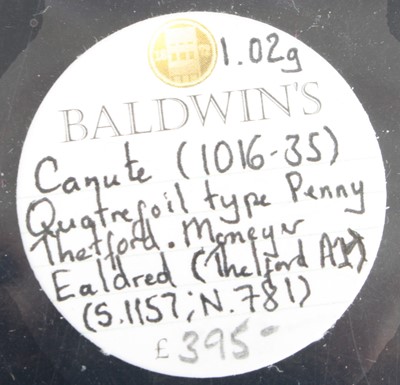 1.02g
BALDWIN'S
Canute (1016-35)
Quatrefoil type Penny
Thetford. Moneyer
Ealdred (Thetford A1)
(S.1157; N.781)
£395-